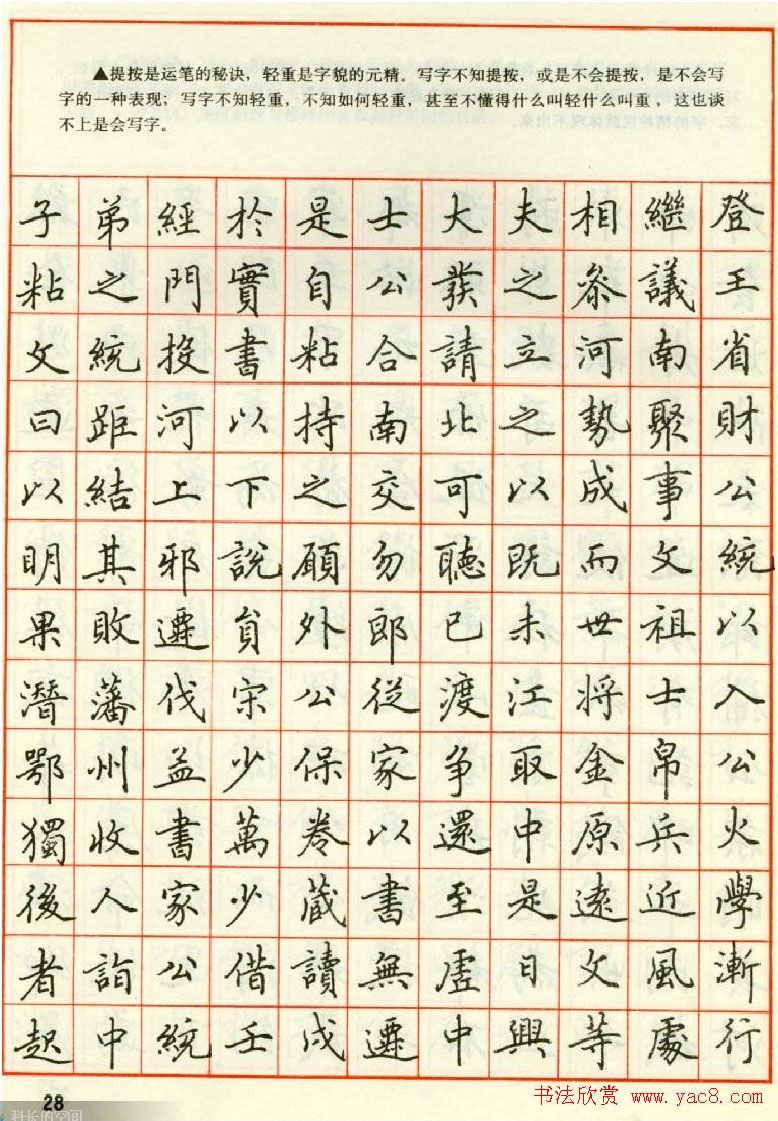 ▲提按是运笔的秘诀，轻重是字貌的元精。写字不知提按，或是不会提按，是不会写
字的一种表现；写字不知轻重，不知如何轻重，甚至不懂得什么叫轻什么叫重，这也谈
不上是会写字。
子弟經於是士大夫相繼登
粘之門實自公發之叅議王
文統投書粘合請立河南省
曰距河以持南北之勢聚財
以結上下之交可以成事公
明其邪說願勿聽既而文統
果敗遷員外郎已未世祖以
潛藩伐宋公從渡江將士入
鄂州益少保家争取金帛公
獨收書萬卷以還中原兵火
後人家少藏書至是遠近學
者詣公借讀無虛日文風漸
起中統壬戌遷中興等處行
28
书法欣赏 www.yac8.com
科长的空间